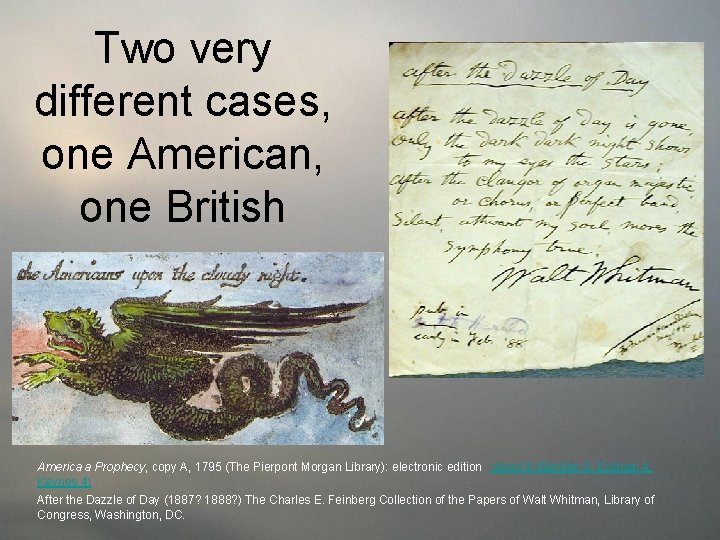 Two very
different cases,
one American,
one British
after the Dazzle of Day
after the dazzle of Day is gone,
only the dark dark night shows
to my eyes the stars;
After the clangor of organ majestic
or chorus, or perfect band,
Silent, athwart my soul, moves the
symphony true.
Walt Whitman
pub: in
Herald
early in Feb. '88
the Americans upon the cloudy night.
America a Prophecy, copy A, 1795 (The Pierpont Morgan Library): electronic edition
Keynes 4)
After the Dazzle of Day (1887? 1888?) The Charles E. Feinberg Collection of the Papers of Walt Whitman, Library of
Congress, Washington, DC.